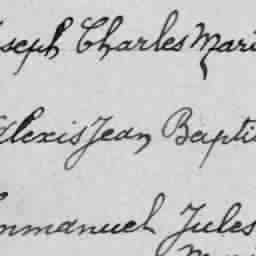 oseph Charles Mari
Alexis Jean Bapti
mmanuel Jules